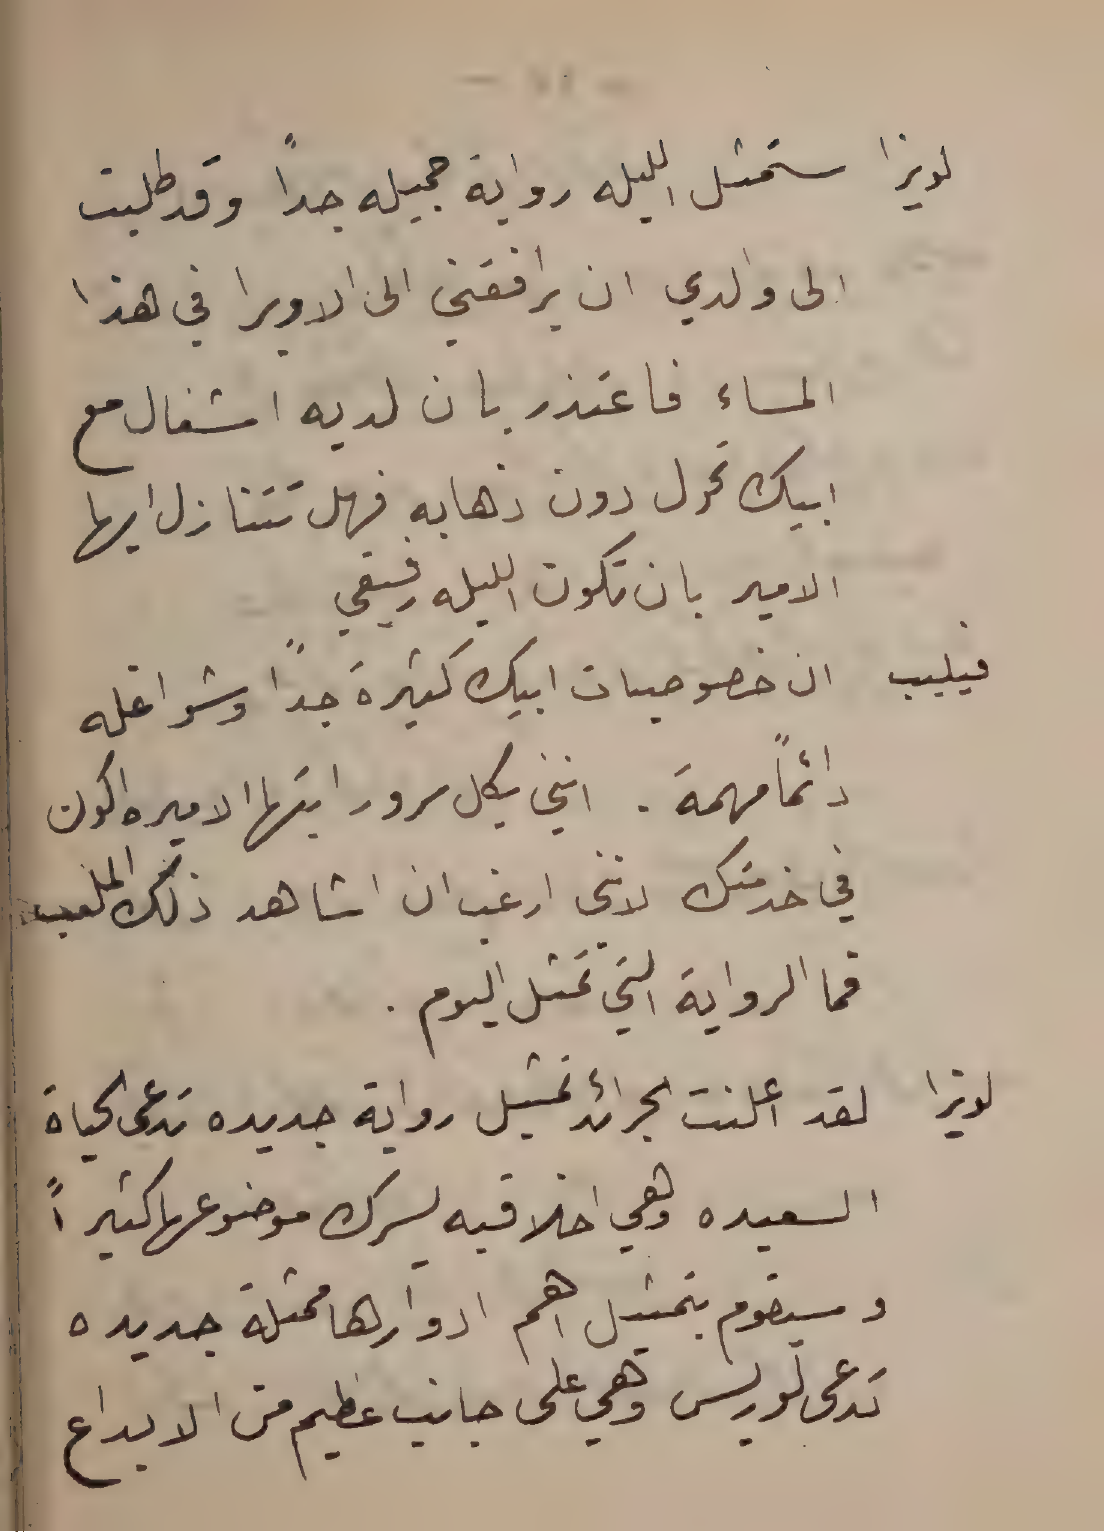 لويزا ستمثل الليله رواية جميله جداً وقد طلبت
الى والدي ان يرافقني الى الاوبرا في هذا
المساء فاعتذر بان لديه اشغال مع
ابيك تحول دون ذهابه فهل تتنازل ايها
الامير بان تكون الليله رفيقي
فيليب ان خصوصيات ابيك كثيرة جداً وشواغله
دائماً مهمة . انني بكل سرور ايتها الاميره اكون
في خدمتك لانني ارغب ان اشاهد ذلك الملعب
فما الرواية التي تمثل اليوم .
لويزا لقد اعلنت الجرائد تمثيل رواية جديده تدعى الحياة
السعيده وهي اخلاقيه يسرك موضوعها كثيراً
وسيقوم بتمثيل اهم ادوارها ممثلة جديده
تدعى لوريس وهي على جانب عظيم من الابداع